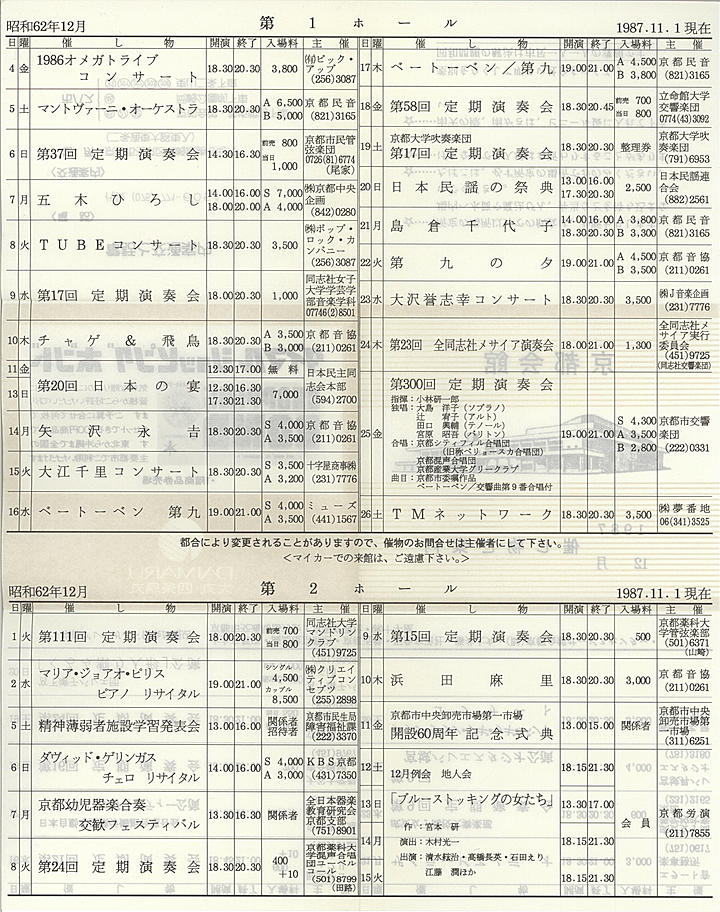 昭和62年12月 第1ホール 1987.11.1現在
日 曜 催し物 開演 終了 入場料 主催
4 金 1986オメガトライブ コンサート 18.30 20.30 3,800 ㈲ビック・アップ (256)3087
5 土 マントヴァーニ・オーケストラ 18.30 20.30 A 6,500 B 5,000 京都民音 (821)3165
6 日 第37回 定期演奏会 14.30 16.30 前売 800 当日 1,000 京都市民管弦楽団 0726(81)6774 (尾家)
7 月 五木ひろし 14.00 16.00 18.00 20.00 S 7,000 A 4,000 ㈱京都中央企画 (842)0280
8 火 TUBEコンサート 18.30 20.30 3,500 ㈱ポップ・ロック・カンパニー (256)3087
9 水 第17回 定期演奏会 18.00 20.30 1,000 同志社女子大学学芸学部音楽学科 07746(2)8501
10 木 チャゲ & 飛鳥 18.30 20.30 A 3,500 B 3,000 京都音協 (211)0261
11 金 第20回 日本の宴 12.30 17.00 無料 日本民主同志会本部 (594)2700
13 日 12.30 16.30 17.30 21.30 7,000
14 月 矢沢永吉 18.30 20.30 S 4,000 A 3,500 京都音協 (211)0261
15 火 大江千里コンサート 18.30 20.30 S 3,500 A 3,200 十字屋商事㈱ (231)7776
16 水 ベートーベン 第九 19.00 21.00 S 4,000 A 3,500 ミューズ (441)1567
17 木 ベートーベン/第九 19.00 21.00 A 4,500 B 3,800 京都民音 (821)3165
18 金 第58回 定期演奏会 18.30 20.45 前売 700 当日 800 立命館大学交響楽団 0774(43)3092
19 土 京都大学吹奏楽団 第17回 定期演奏会 18.30 20.30 整理券 京都大学吹奏楽団 (791)6953
20 日 日本民謡の祭典 13.00 16.00 17.30 20.30 2,500 日本民謡連合会 (882)2561
21 月 島倉千代子 14.00 16.00 18.30 20.30 A 3,800 B 3,300 京都民音 (821)3165
22 火 第九の夕 19.00 21.00 A 4,500 B 3,500 京都音協 (211)0261
23 水 大沢誉志幸コンサート 18.30 20.30 3,500 ㈱J音楽企画 (231)7776
24 木 第23回 全同志社メサイア演奏会 18.00 21.00 1,300 全同志社メサイア実行委員会 (451)9725 (同志社交響楽団)
25 金 第300回 定期演奏会 19.00 21.00 S 4,300 A 3,500 B 2,800 京都市交響楽団 (222)0331
指揮:小林研一郎
独唱:大島 洋子(ソプラノ)
辻 宥子(アルト)
田口 興輔(テノール)
宮原 昭吾(バリトン)
合唱:京都シティフィル合唱団
(旧称ペリョースカ合唱団)
京都混声合唱団
京都産業大学グリークラブ
曲目:京都市委嘱作品
ベートーベン/交響曲第9番合唱付
26 土 TMネットワーク 18.30 20.30 3,500 ㈱夢番地 06(341)3525
都合により変更されることがありますので、催物のお問合せは主催者にして下さい。
<マイカーでの来館は、ご遠慮下さい。>
昭和62年12月 第2ホール 1987.11.1現在
日 曜 催し物 開演 終了 入場料 主催
1 火 第111回 定期演奏会 18.00 20.30 前売 700 当日 800 同志社大学マンドリンクラブ (451)9725
2 水 マリア・ジョアオ・ピリス ピアノ リサイタル 19.00 21.00 シングル 4,500 カップル 8,500 ㈱クリエイティブコンセプツ (255)2898
5 土 精神薄弱者施設学習発表会 13.00 16.00 関係者招待者 京都市民生局障害福祉課 (222)3370
6 日 ダヴィッド・ゲリンガス チェロ リサイタル 14.00 16.00 S 4,000 A 3,000 KBS京都 (431)7350
7 月 京都幼児器楽合奏 交歓フェスティバル 13.30 16.30 関係者 全日本器楽教育研究会京都支部 (751)8901
8 火 第24回 定期演奏会 18.30 20.30 400 +10 京都薬科大学混声合唱団ユーベルコール (501)8799 (田路)
9 水 第15回 定期演奏会 18.30 20.30 500 京都薬科大学管弦楽部 (501)6371 (山崎)
10 木 浜田麻里 18.30 20.30 3,000 京都音協 (211)0261
11 金 京都市中央卸売市場第一市場 開設60周年記念式典 13.00 15.00 関係者 京都市中央卸売市場第一市場 (311)6251
12 土 12月例会 地人会 18.15 21.30 会員 京都労演 (211)7855
13 日 「ブルーストッキングの女たち」 13.30 17.00
作:宮本 研
14 月 演出:木村光一 18.15 21.30
出演:清水紘治・高橋長英・石田えり
15 火 江藤 潤ほか 18.15 21.30